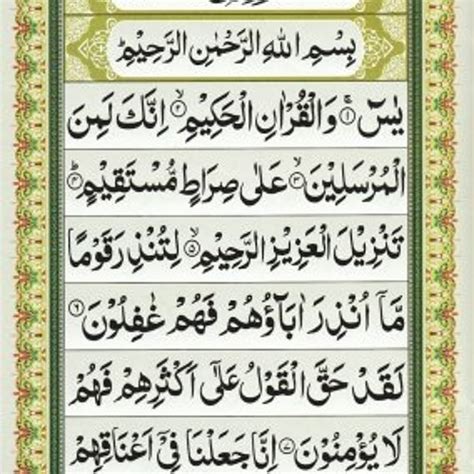 بِسْمِ اللهِ الرَّحْمٰنِ الرَّحِيْمِ
يٰسٓ ﴿۱﴾ وَالْقُرْاٰنِ الْحَكِيْمِ ﴿۲﴾ اِنَّكَ لَمِنَ
الْمُرْسَلِيْنَ ﴿۳﴾ عَلٰى صِرَاطٍ مُّسْتَقِيْمٍ ﴿۴﴾
تَنْزِيْلَ الْعَزِيْزِ الرَّحِيْمِ ﴿۵﴾ لِتُنْذِرَ قَوْمًا
مَّآ اُنْذِرَ اٰبَآؤُهُمْ فَهُمْ غٰفِلُوْنَ ﴿۶﴾
لَقَدْ حَقَّ الْقَوْلُ عَلٰٓى اَكْثَرِهِمْ فَهُمْ
لَا يُؤْمِنُوْنَ ﴿۷﴾ اِنَّا جَعَلْنَا فِيْٓ اَعْنَاقِهِمْ